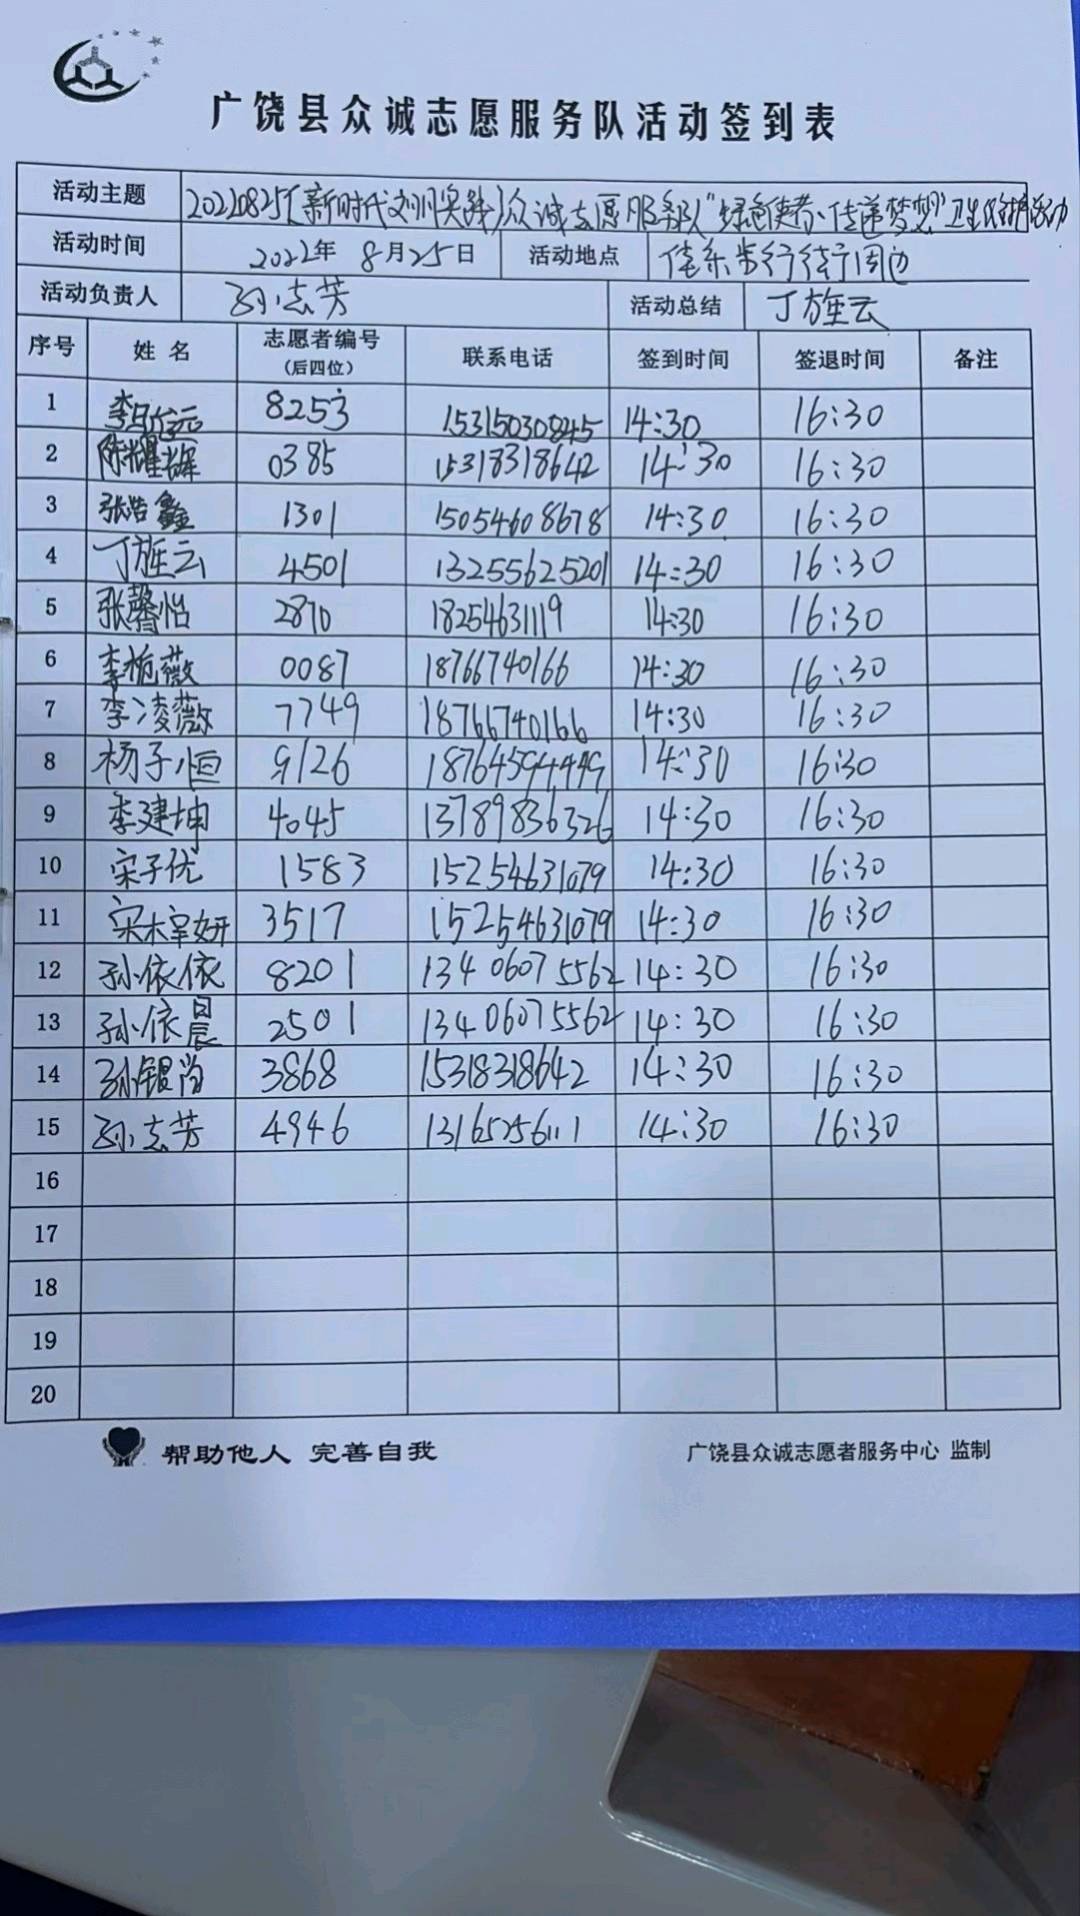 广饶县众诚志愿服务队活动签到表
活动主题 20220825〔新时代文明实践〕众诚志愿服务队“绿色使者、传递梦想”卫生保护活动
活动时间 2022年 8月25日 活动地点 佳乐步行街周边
活动负责人 孙志芳 活动总结 丁旌云
序号 姓名 志愿者编号（后四位） 联系电话 签到时间 签退时间 备注
1 8253 15315030845 14:30 16:30
2 陈耀辉 0385 15318318642 14:30 16:30
3 张浩鑫 1301 15054608678 14:30 16:30
4 丁旌云 4501 13255625201 14:30 16:30
5 张馨怡 2870 18254631119 14:30 16:30
6 李栀薇 0087 18766740166 14:30 16:30
7 李凌薇 7749 18766740166 14:30 16:30
8 杨子恒 9126 18764594449 14:30 16:30
9 李建坤 4045 13789836326 14:30 16:30
10 宋子优 1583 15254631079 14:30 16:30
11 宋梓妍 3517 15254631079 14:30 16:30
12 孙依依 8201 13406075562 14:30 16:30
13 孙依晨 2501 13406075562 14:30 16:30
14 孙锟尚 3868 15318318642 14:30 16:30
15 孙志芳 4946 14:30 16:30
16
17
18
19
20
帮助他人 完善自我 广饶县众诚志愿者服务中心 监制